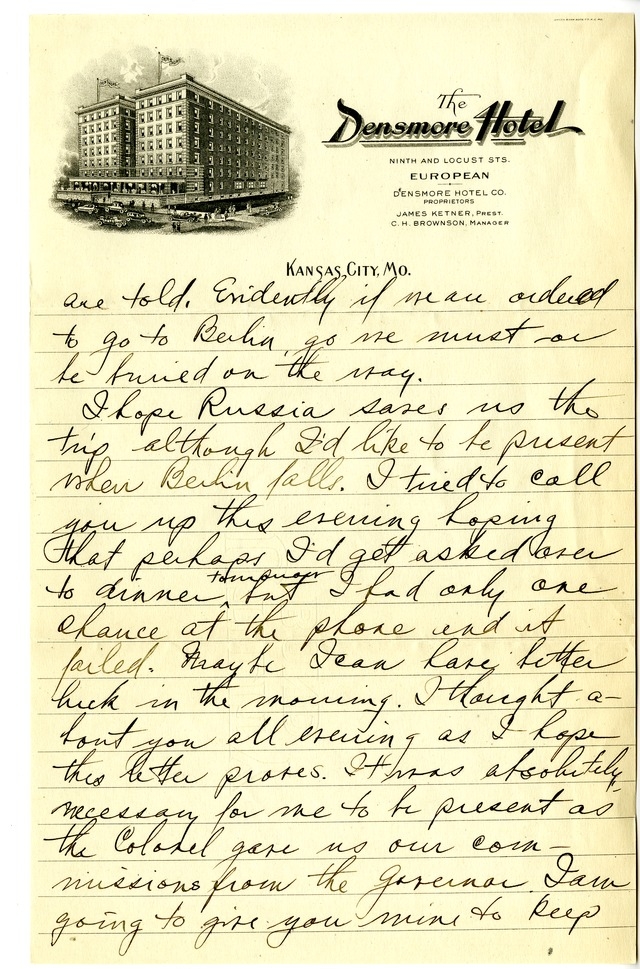 The
Densmore Hotel
NINTH AND LOCUST STS.
EUROPEAN
DENSMORE HOTEL CO.
PROPRIETORS
JAMES KETNER, PREST.
C. H. BROWNSON, MANAGER
KANSAS CITY, MO.
are told. Evidently if we are ordered
to go to Berlin, go we must or
be buried on the way.
I hope Russia saves us the
trip although I'd like to be present
when Berlin falls. I tried to call
you up this evening hoping
that perhaps I'd get asked over
tomorrow
to dinner, but I had only one
chance at the phone and it
failed. Maybe I can have better
luck in the morning. I thought a-
bout you all evening as I hope
this letter proves. It was absolutely
necessary for me to be present as
the Colonel gave us our com-
missions from the Governor. I am
going to give you mine to keep